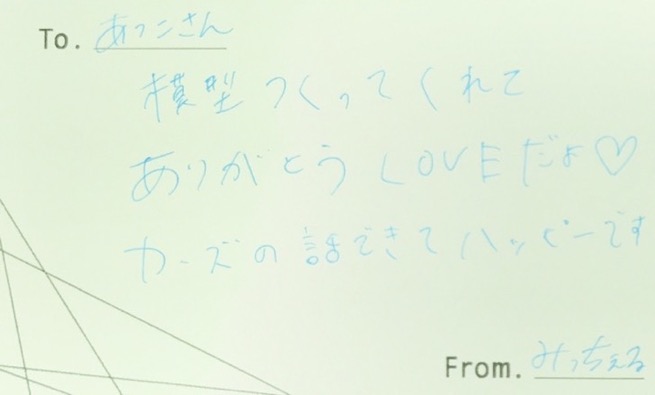 To. あっこさん
模型つくってくれて
ありがとう LOVEだよ♡
カーズの話できてハッピーです
From. みっちぇる